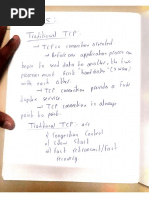 Traditional TCP:
→ TCP is connection oriented
→ Before one application process can
begin to send data to another, the two
processes must first "handshake"
with each other.
→ TCP connection provides a full
duplex service.
→ TCP connection is always
point to point.
Traditional TCP:
Congestion Control
Slow Start
Fast retransmit/Fast
recovery